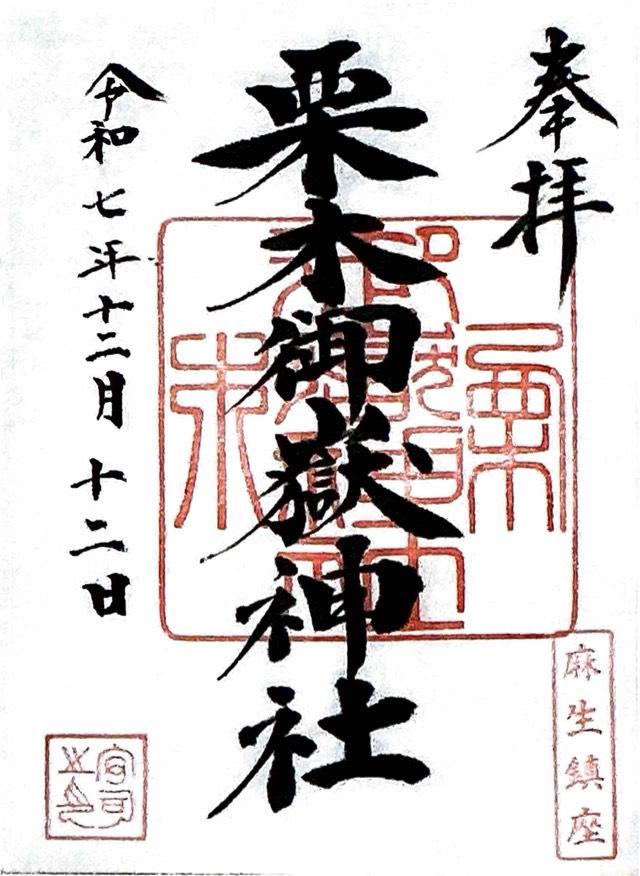 奉拝
栗木御嶽神社
令和七年十二月十二日
麻生鎮座
宮司之印